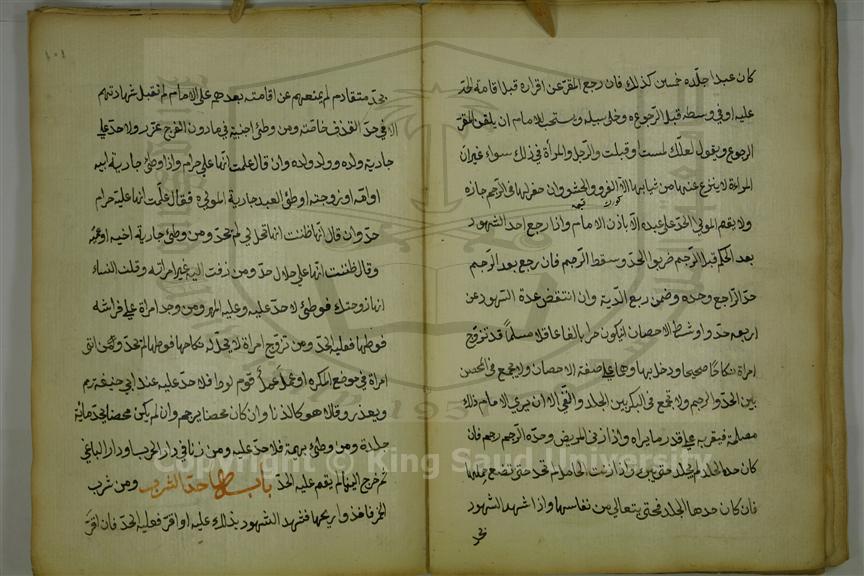 كان عبدا جلده خمسين كذلك فان رجع المقر عن اقراره قبل اقامة الحد
عليه او في وسطه قبل الرجوعه وخلى سبيله ويستحب للامام ان يلقن المقر
الرجوع ويقول لعلك لمست وقبلت والرجل والمرأة في ذلك سواء غير ان
المراءة لا ينزع عنها من ثيابها الا الفرو والحشو وان حفر لها في الرجم جازه
ولا يقيم المولى الحد على عبده الا باذن الامام واذا رجع احد الشهود
بعد الحكم قبل الرجم ضربوا الحد وسقط الرجم فان رجع بعد الرجم
حد الراجع وحده وضمن ربع الدية وان انتقض عدة الشهود عن
اربعه حدوا وشرط الاحصان ان يكون حرا بالغا عاقلا مسلما قد تزوج
امراة نكاحا صحيحا ودخل بها وهما على صفة الاحصان ولا يجمع في المحصن
بين الحد والرجم ولا تجمع في البكر بين الجلد والنفي الا ان يرى الامام ذلك
مصلحة فيغربه على قدر ما يراه واذا زنى المريض وحده الرجم رجم فان
كان حده الجلد لم يجلد حتى يبرئ واذا زنت الحامل لم تحد حتى تضع حملها
فان كان حدها الجلد فحتى يتعالى من نفاسها واذا شهد الشهود
بحد
١٠١
بحد متقادم لم يمنعهم عن اقامته بعدهم على الامام لم تقبل شهادتهم
الا في حد القذف خاصة ومن وطئ اجنبية في ما دون الفرج عزر ولا حد على
جارية ولده وولد ولده وان قال علمت انها على حرام واذا وطئ جارية ابيه
او امه او زوجته او وطئ العبد جارية المولى ه فقال علمت انها علية حرام
حد وان قال انها ظننت انها تحل لي لم تحد ومن وطئ جارية اخيه او عمه
وقال ظننت انها على حلال حد ومن زفت اليه غير امراته وقلن النساء
انها زوجتك فوطئ لا حد عليه وعليه المهر ومن وجد امراة على فراشه
فوطها فعليه الحد ومن تزوج امراة لا يحل له نكاحها فوطها لم تحد ومن اتى
امراة في موضع المكره او عمل عمل قوم لوط فلا حد عليه عند ابي حنيفة رح
ويعذر وقالا هو كالزنا وان كان محصنا يرجم وان لم يكن محصنا يحد مائة
جلدة ومن وطئ بهيمة فلا حد عليه ومن زنا في دار الحرب او دار البلغي
ثم خرج الينا لم يقم عليه الحد باب حد الشرب ومن شرب
الخمر فاخذ وريحها فشهد الشهود بذلك عليه او اقر فعليه الحد فان اقر
Copyright © King Saud University
1957